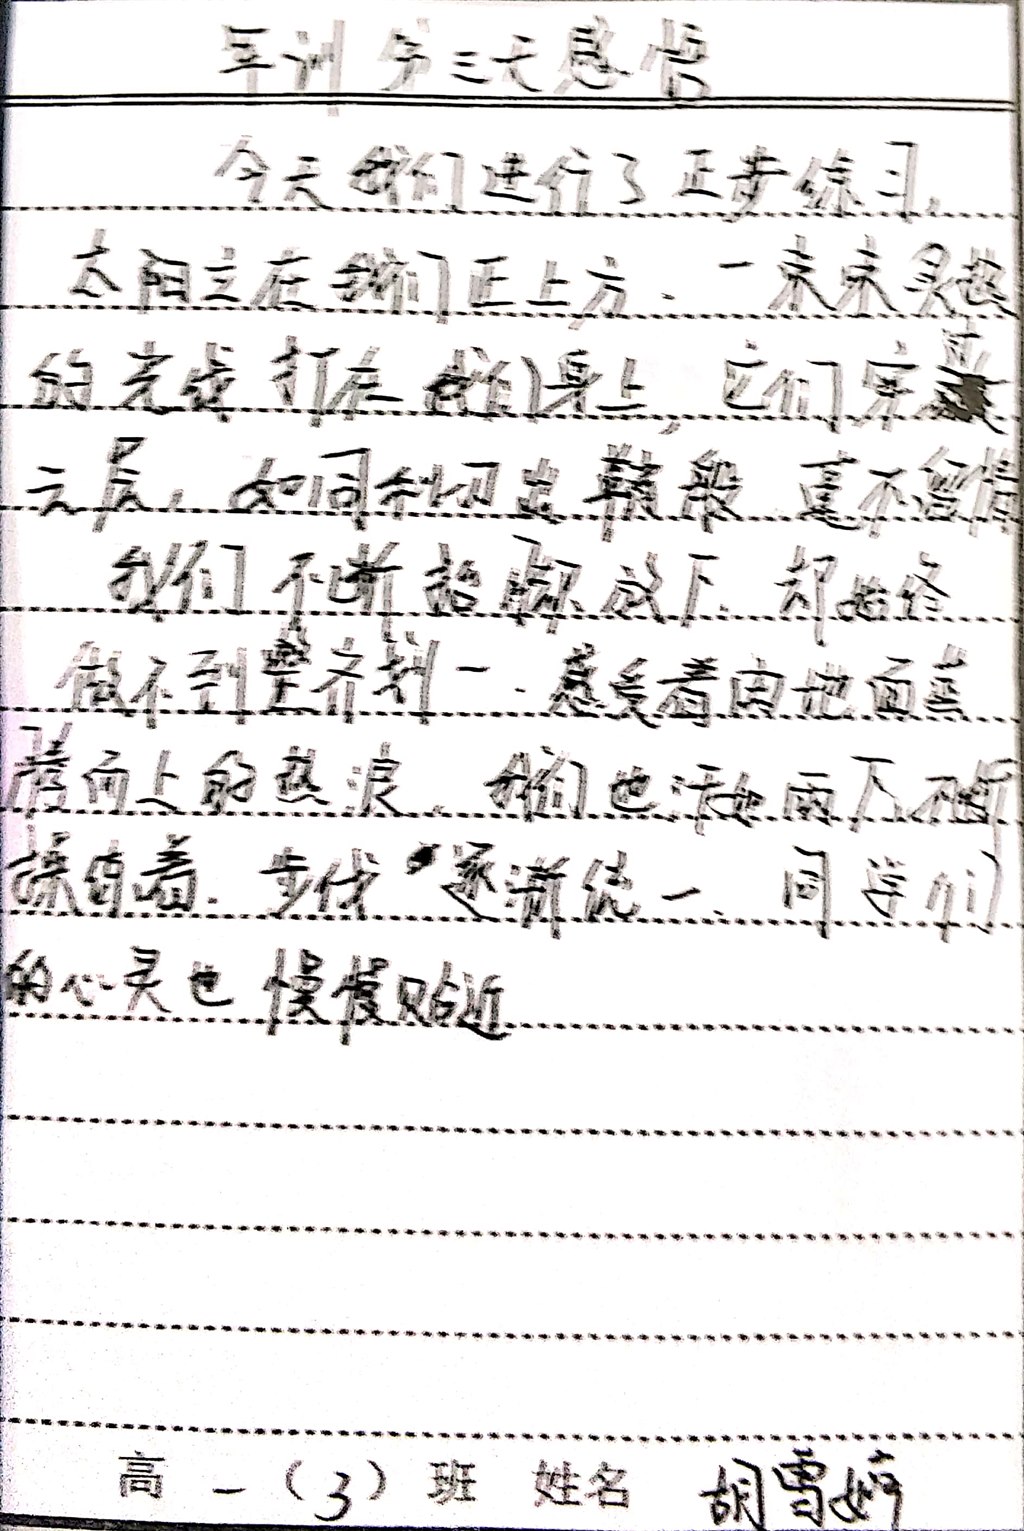 军训第三天感悟
今天我们进行了正步练习,
太阳立在我们正上方. 一束束灵热
的光线打在我们身上, 它们穿过
云层, 如同利刃出鞘般 毫不留情
我们不断抬脚放下. 却始终
做不到整齐划一. 感受着由地面蒸
腾而上的热浪. 我们也汗如雨下不断
操练着. 步伐逐渐统一. 同学们
的心灵也慢慢贴近
高一(3)班 姓名 胡雪婷